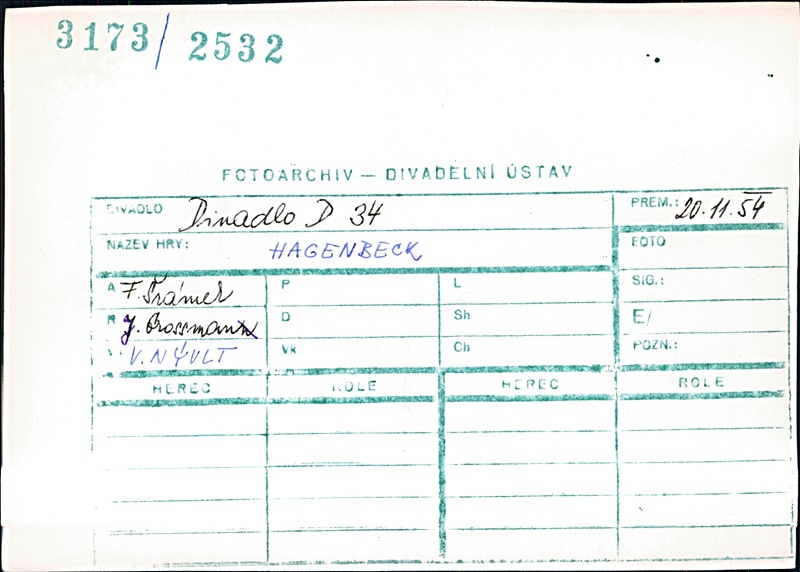 3173/ 2532
FOTOARCHIV — DIVADELNÍ ÚSTAV
DIVADLO Divadlo D 34 PREM.: 20.11.54
NÁZEV HRY: HAGENBECK FOTO
A F. Šrámek P L SIG.:
R J. Grossmann D Sh E/
V. NÝVLT Vk Ch POZN.:
HEREC ROLE HEREC ROLE